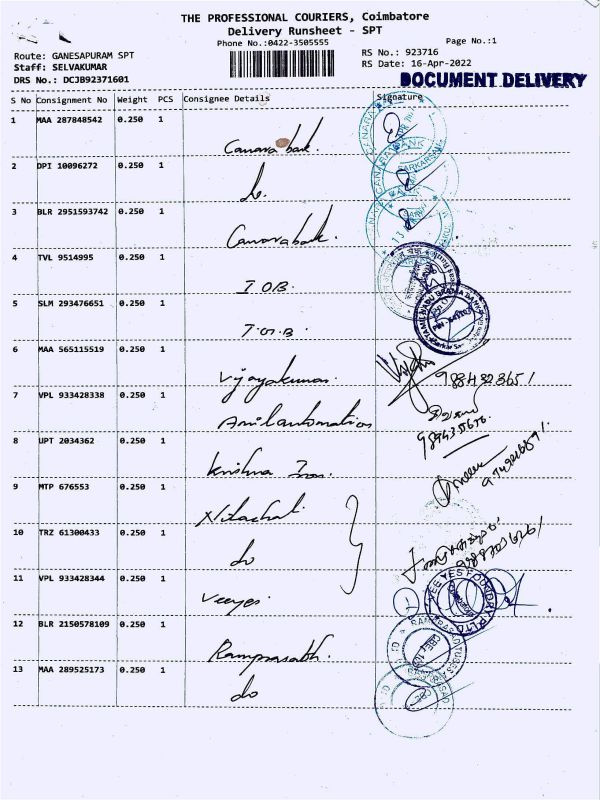 THE PROFESSIONAL COURIERS, Coimbatore
Delivery Runsheet - SPT
Phone No.:0422-3505555
Page No.:1
Route: GANESAPURAM SPT
RS No.: 923716
Staff: SELVAKUMAR
RS Date: 16-Apr-2022
DRS No.: DCJB92371601
DOCUMENT DELIVERY
S No Consignment No Weight PCS Consignee Details Signature
1 MAA 287848542 0.250 1
Canara bank.
2 DPI 10096272 0.250 1
do.
3 BLR 2951593742 0.250 1
Canara bank.
4 TVL 9514995 0.250 1
I.O.B.
5 SLM 293476651 0.250 1
T.M.B.
6 MAA 565115519 0.250 1
Vijayakumar
7 VPL 933428338 0.250 1
Anil automation
8 UPT 2034362 0.250 1
Krishna Iron.
9 MTP 676553 0.250 1
10 TRZ 61300433 0.250 1
do
11 VPL 933428344 0.250 1
Veeyes
VEE YES FOUNDRY P LTD
12 BLR 2150578109 0.250 1
Ramprasath.
13 MAA 289525173 0.250 1
do